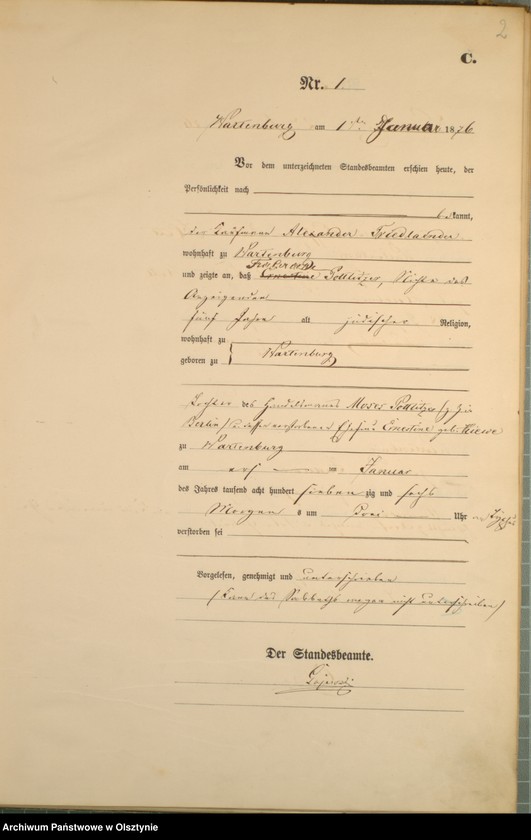 2
C.
Nr. 1.
Wartenburg am 1ten Januar 1876
Vor dem unterzeichneten Standesbeamten erschien heute, der
Persönlichkeit nach
bekannt,
der Kaufmann Alexander Friedlaender
wohnhaft zu Wartenburg
und zeigte an, daß Ernestine Pollitzer, Nichte des
Anzeigenden
fünf Jahre alt jüdischer Religion,
wohnhaft zu
geboren zu Wartenburg
Tochter des Handelsmanns Moses Pollitzer zu
Berlin dessen verstorbener Ehefrau Ernestine geb.
zu Wartenburg
am ersten Januar
des Jahres tausend acht hundert siebenzig und sechs
Morgens um drei Uhr
verstorben sei
Vorgelesen, genehmigt und unterschrieben
(kann des Sabbaths wegen nicht unterschreiben)
Der Standesbeamte.
Archiwum Państwowe w Olsztynie